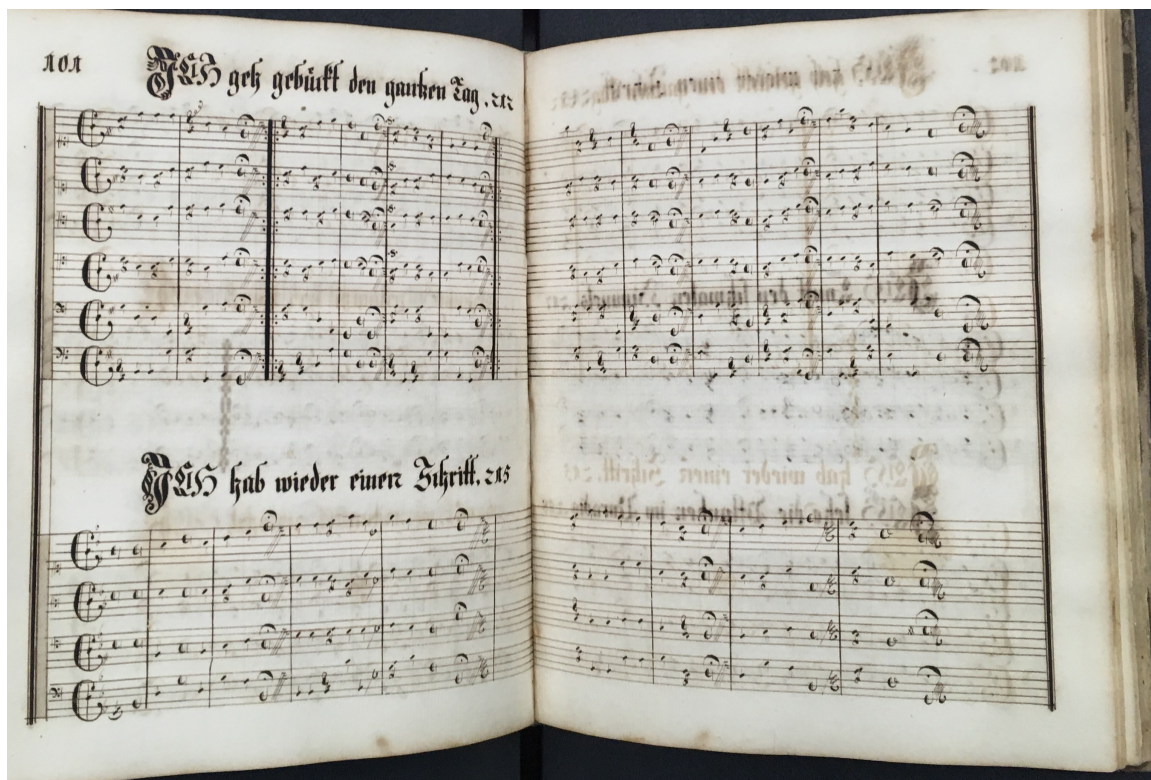 101
ICH geh gebückt den gantzen Tag. 212
ICH hab wieder einen Schritt. 215